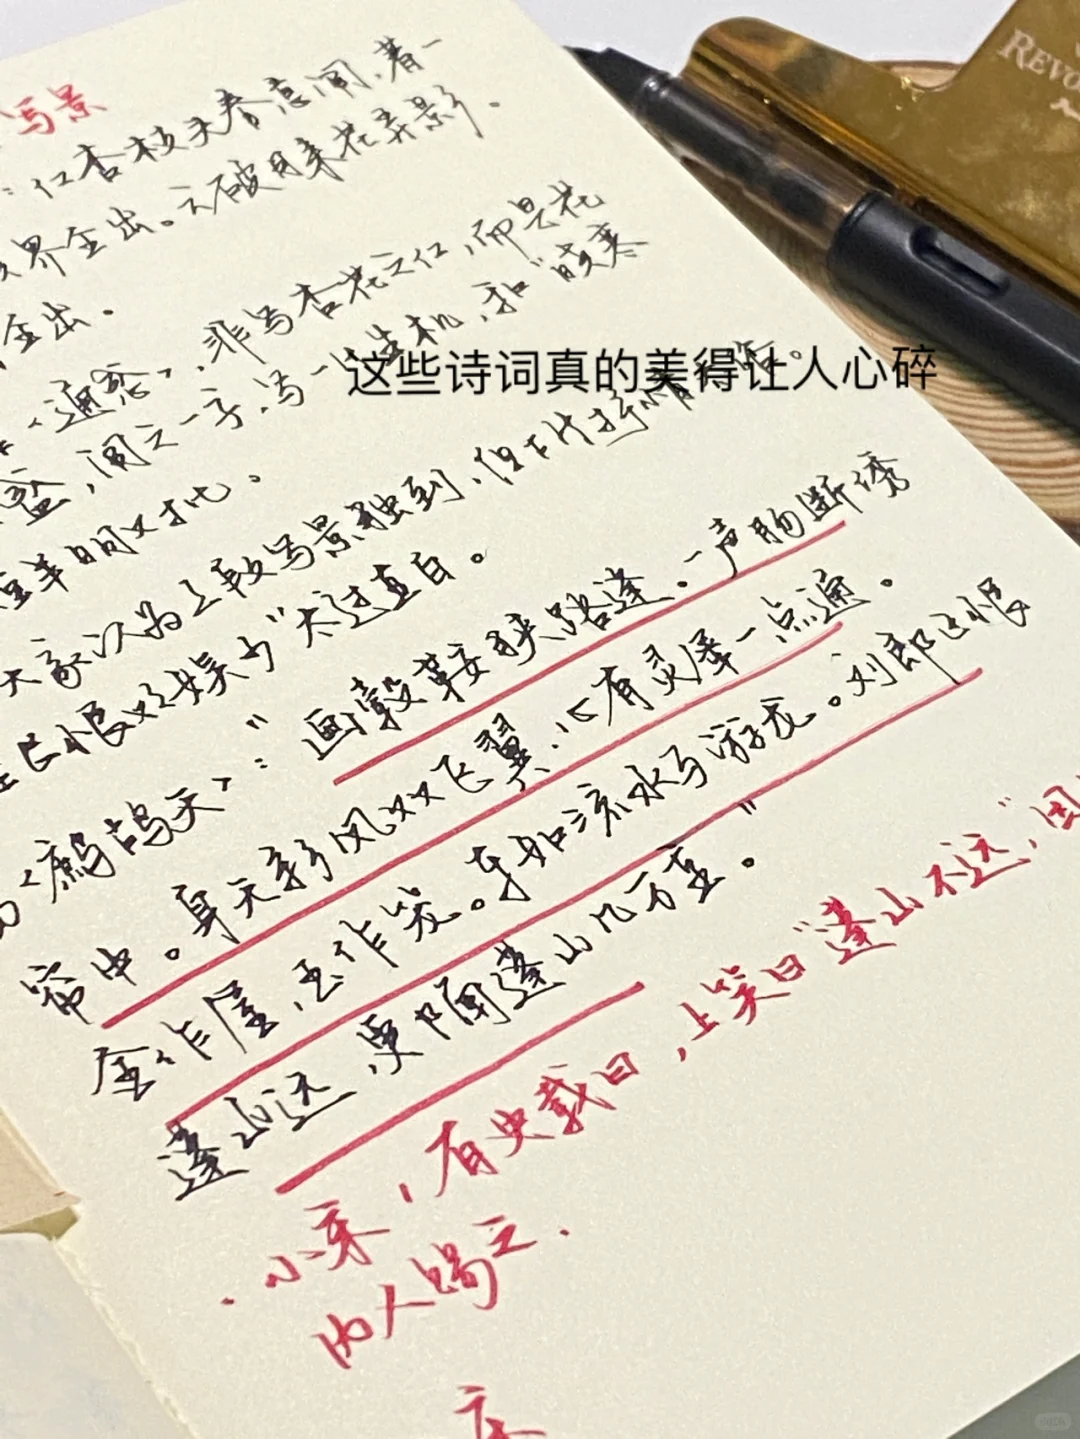 写景
REVO
：红杏枝头春意闹，着一
境界全出。云破月来花弄影，
全出。
"通感"，非写杏花之红，而是花
盛，闹之一字，写一片生机，和"晓寒
鲜明对比。
这些诗词真的美得让人心碎
大家以为上段写景独到，但下片抒情
"太过直白。
《鹧鸪天》："画毂雕鞍狭路逢。一声肠断绣
帘中。身无彩凤双飞翼，心有灵犀一点通。
金作屋，玉作笼。车如流水马游龙。刘郎已恨
蓬山远，更隔蓬山几万重。"
小宋，有史载曰，上笑曰"蓬山不远"，因
内人赐之。